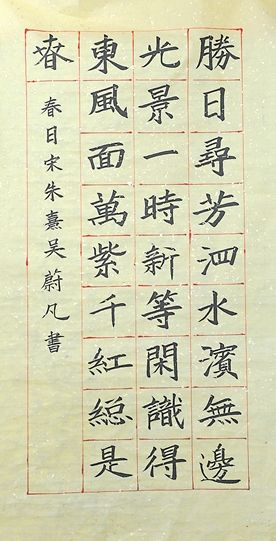 勝日尋芳泗水濱無邊
光景一時新等閑識得
東風面萬紫千紅總是
春
春日宋朱熹吳蔚凡書